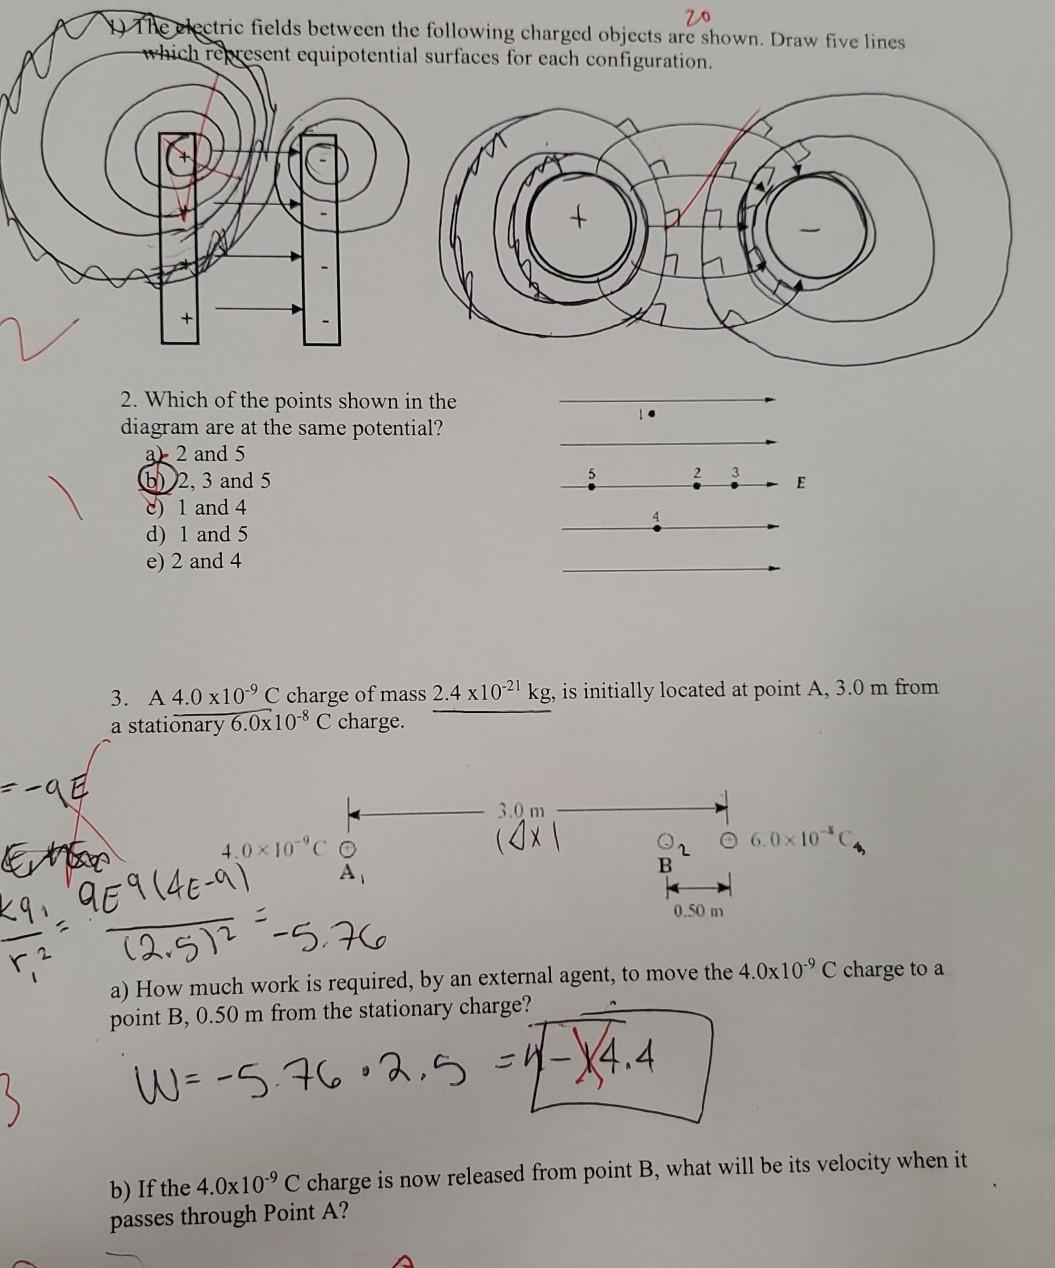 20
1) The electric fields between the following charged objects are shown. Draw five lines
which represent equipotential surfaces for each configuration.
+ -
+ -
+ -
+ -
+ -
2
2. Which of the points shown in the
diagram are at the same potential?
a) 2 and 5
b) 2, 3 and 5
c) 1 and 4
d) 1 and 5
e) 2 and 4
1
5 2 3 E
4
3. A 4.0 x10⁻⁹ C charge of mass 2.4 x10⁻²¹ kg, is initially located at point A, 3.0 m from
a stationary 6.0x10⁻⁸ C charge.
= -qE
3.0 m
(Δx)
4.0×10⁻⁹C + A 1
2 B + 6.0×10⁻⁸C
0.50 m
kq₁/r₁² = 9E9(4E-9)/(2.5)² = -5.76
a) How much work is required, by an external agent, to move the 4.0x10⁻⁹ C charge to a
point B, 0.50 m from the stationary charge?
W = -5.76 · 2.5 = -14.4
3
b) If the 4.0x10⁻⁹ C charge is now released from point B, what will be its velocity when it
passes through Point A?